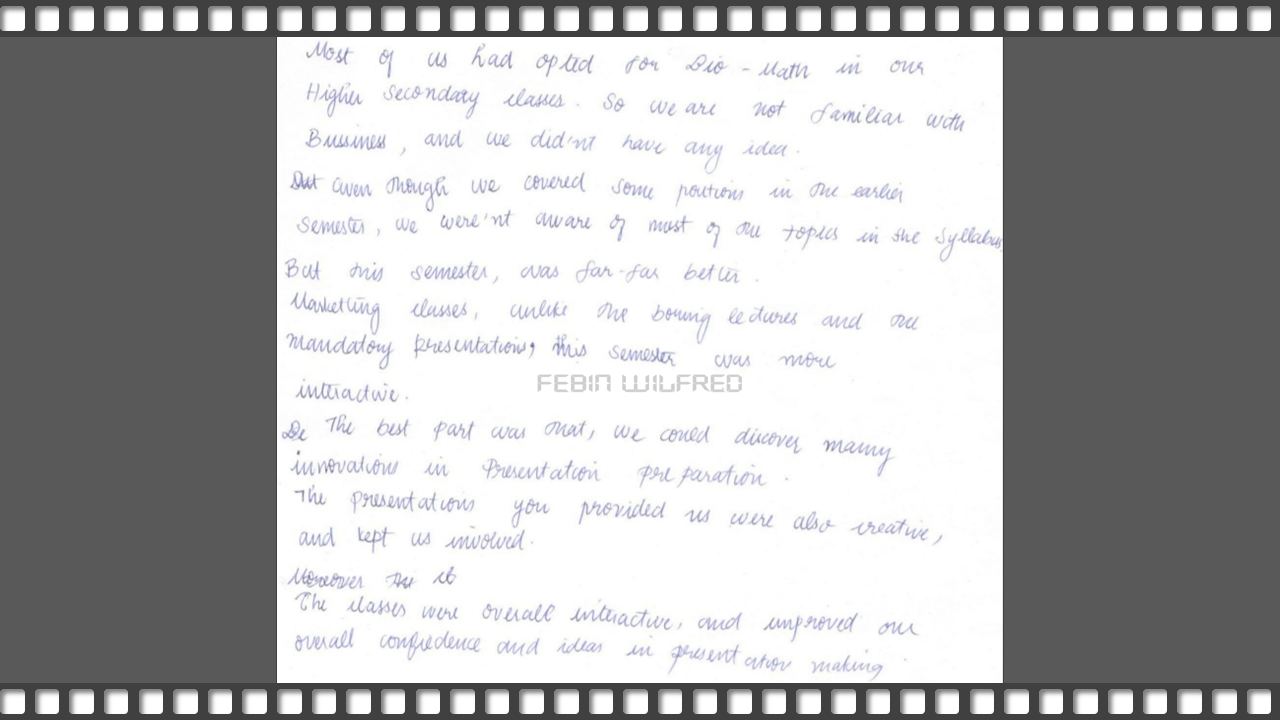 Most of us had opted for Bio-Math in our
Higher secondary classes. So we are not familiar with
Bussiness, and we did'nt have any idea.
But Even though we covered some poutions in the earlier
Semester, we were'nt aware of most of the topics in the syllabus
But this semester, was far-far better.
Marketting classes, unlike the boring lectures and the
mandatory presentations, this semester was more
FEBIN WILFRED
interactive.
De The best part was that, we could discover many
innovations in Presentation preparation.
The presentations you provided us were also creative,
and kept us involved.
Moreover The it
The classes were overall interactive, and improved our
overall confidence and ideas in presentation making